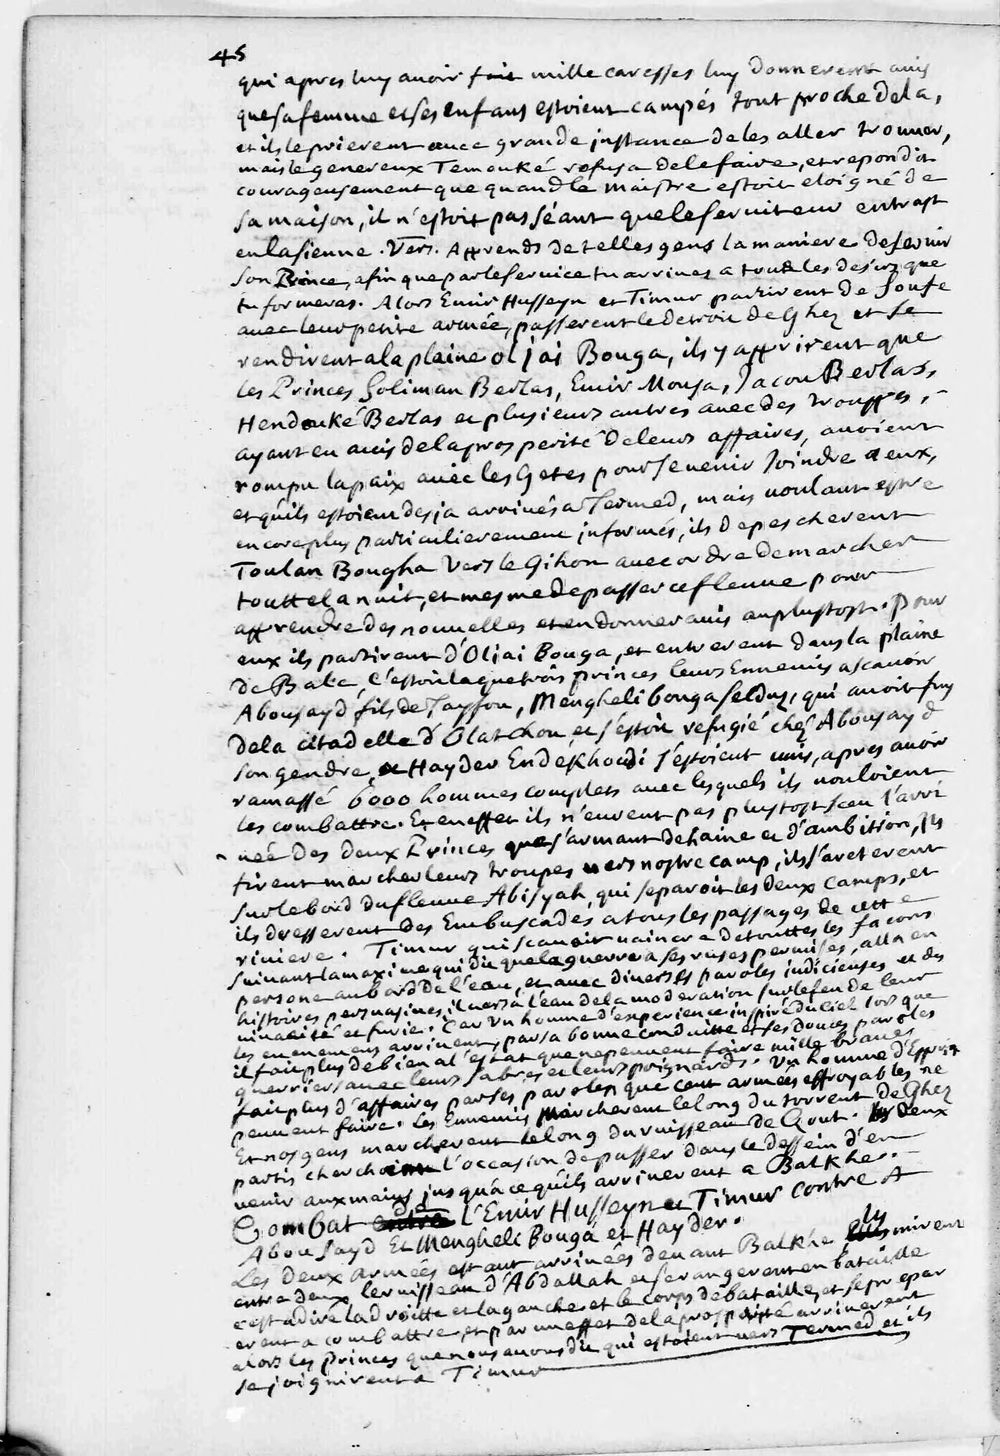 45
qui apres luy avoir fait mille caresses luy donnerent avis
que sa femme et ses enfans estoient campés tout proche dela,
et ils le prierent avec grande instance de les aller trouver,
mais le genereux Temouké refusa de le faire, et repondit
courageusement que quand le maistre estoit eloigné de
sa maison, il n'estoit pas séant que le serviteur entrast
en la sienne. Vers. Apprends de telles gens la maniere de servir
son Prince, afin que par le service tu arrives a tout les desirs que
tu formeras. Alors Emir Husseyn et Timur partirent de Soufe
avec leur petite armée, passerent le detroit de Ghez et se
rendirent a la plaine oljai Bouga, ils y apprirent que
les Princes Soliman Berlas, Emir Mousa, Jacou Berlas,
Hendouké Berlas et plusieurs autres avec des trouppes,
ayant eu avis de la prosperité de leurs affaires, avoient
rompu la paix avec les Getes pour se venir Joindre a eux,
et qu'ils estoient desja arrivés a Termed, mais voulant estre
encore plus particulierement informés, ils depescherent
Toulan Bougha vers le Gihon avec ordre de marcher
toutte la nuit, et mesme de passer ce fleuve pour
apprendre des nouvelles et en donner avis au plustost. Pour
eux ils partirent d'Oljai Bouga, et entrerent dans la plaine
de Balc, c'estoit la que trois princes leurs Ennemis a scavoir
Abousayd fils de Taysou, Mengheli bouga Selduz, qui avoit fuy
de la citadelle d'Olatchou et s'estoit refugié chez Abousayd
son gendre, et Hayder Endekhoudi s'estoient unis, apres avoir
ramassé 6000 hommes complets avec lesquels ils vouloient
les combattre. Et en effet ils n'eurent pas plustost sceu l'arri
vée des deux Princes que s'armant de haine et d'ambition, ils
firent marcher leurs troupes vers nostre camp, ils s'areterent
sur le bord du fleuve Abisyah, qui separoit les deux camps, et
ils dresserent des Embuscades a tous les passages de cette
riviere. Timur qui scavoit vaincre de touttes les facons
suivant la maxime qui dit que la guerre a ses ruses permises, alla en
persone au bord de l'eau, et avec diverses paroles judicieuses et des
histoires persuasives, il versa l'eau de la moderation sur le feu de leur
vivacité et furie. Car un homme d'experience inspiré du ciel lors que
les evenemens arrivent, par sa bonne conduitte et ses douces paroles
il fait plus de bien a l'estat que ne peuvent faire mille braves
guerriers avec leurs sabres et leurs poignards. Un homme d'Esprit
fait plus d'affaires par ses paroles que cent armées effroyables ne
peuvent faire. Les Ennemis marcherent le long du torrent de Ghez
Et nos gens marcherent le long du ruisseau de Gout. les deux
partis cherchoient l'occasion de passer dans le dessein d'en
venir aux mains jusqu'a ce qu'ils arriverent a Balkhe.
Combat de l'Emir Husseyn et Timur contre A
Abou Sayd Et Mengheli Bouga et Hayder.
Les deux armées estant arrivées devant Balkhe ils mirent
entre deux le ruisseau d'Abdallah et se rangerent en bataille
c'est a dire la droitte et la gauche et le corps de bataille, et se prepar
erent a combattre, et par un effet de la prosperité arriverent
alors les princes que nous avons dit qui estoient vers Termed et ils
se joignirent a Timur